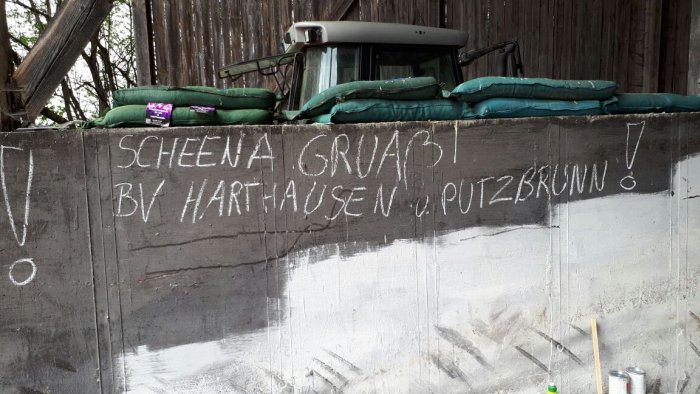 SCHEENA GRUAẞ!
BV HARTHAUSEN u. PUTZBRUNN!